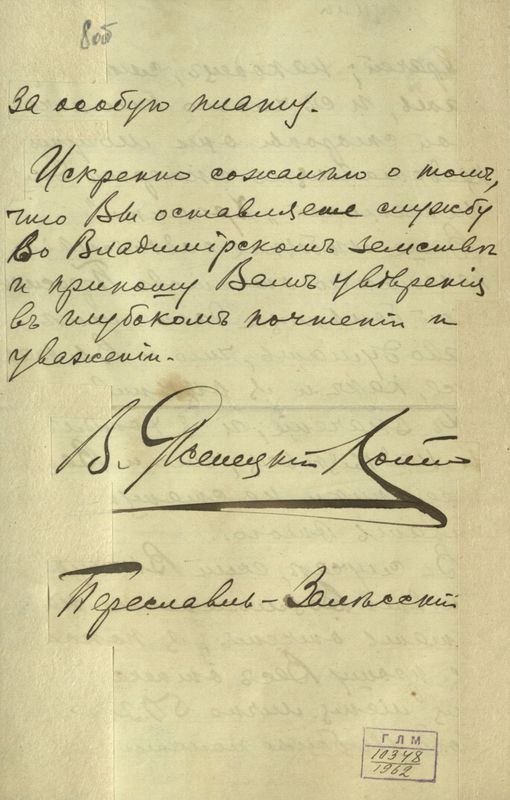 8об
за особую плату.
Искренно сожалѣю о томъ,
что Вы оставляете службу
во Владимірскомъ земствѣ
и приношу Вамъ увѣренія
въ глубокомъ почтеніи и
уваженіи.
В.
Переславль-Залѣсскій
ГЛМ
10348
1962